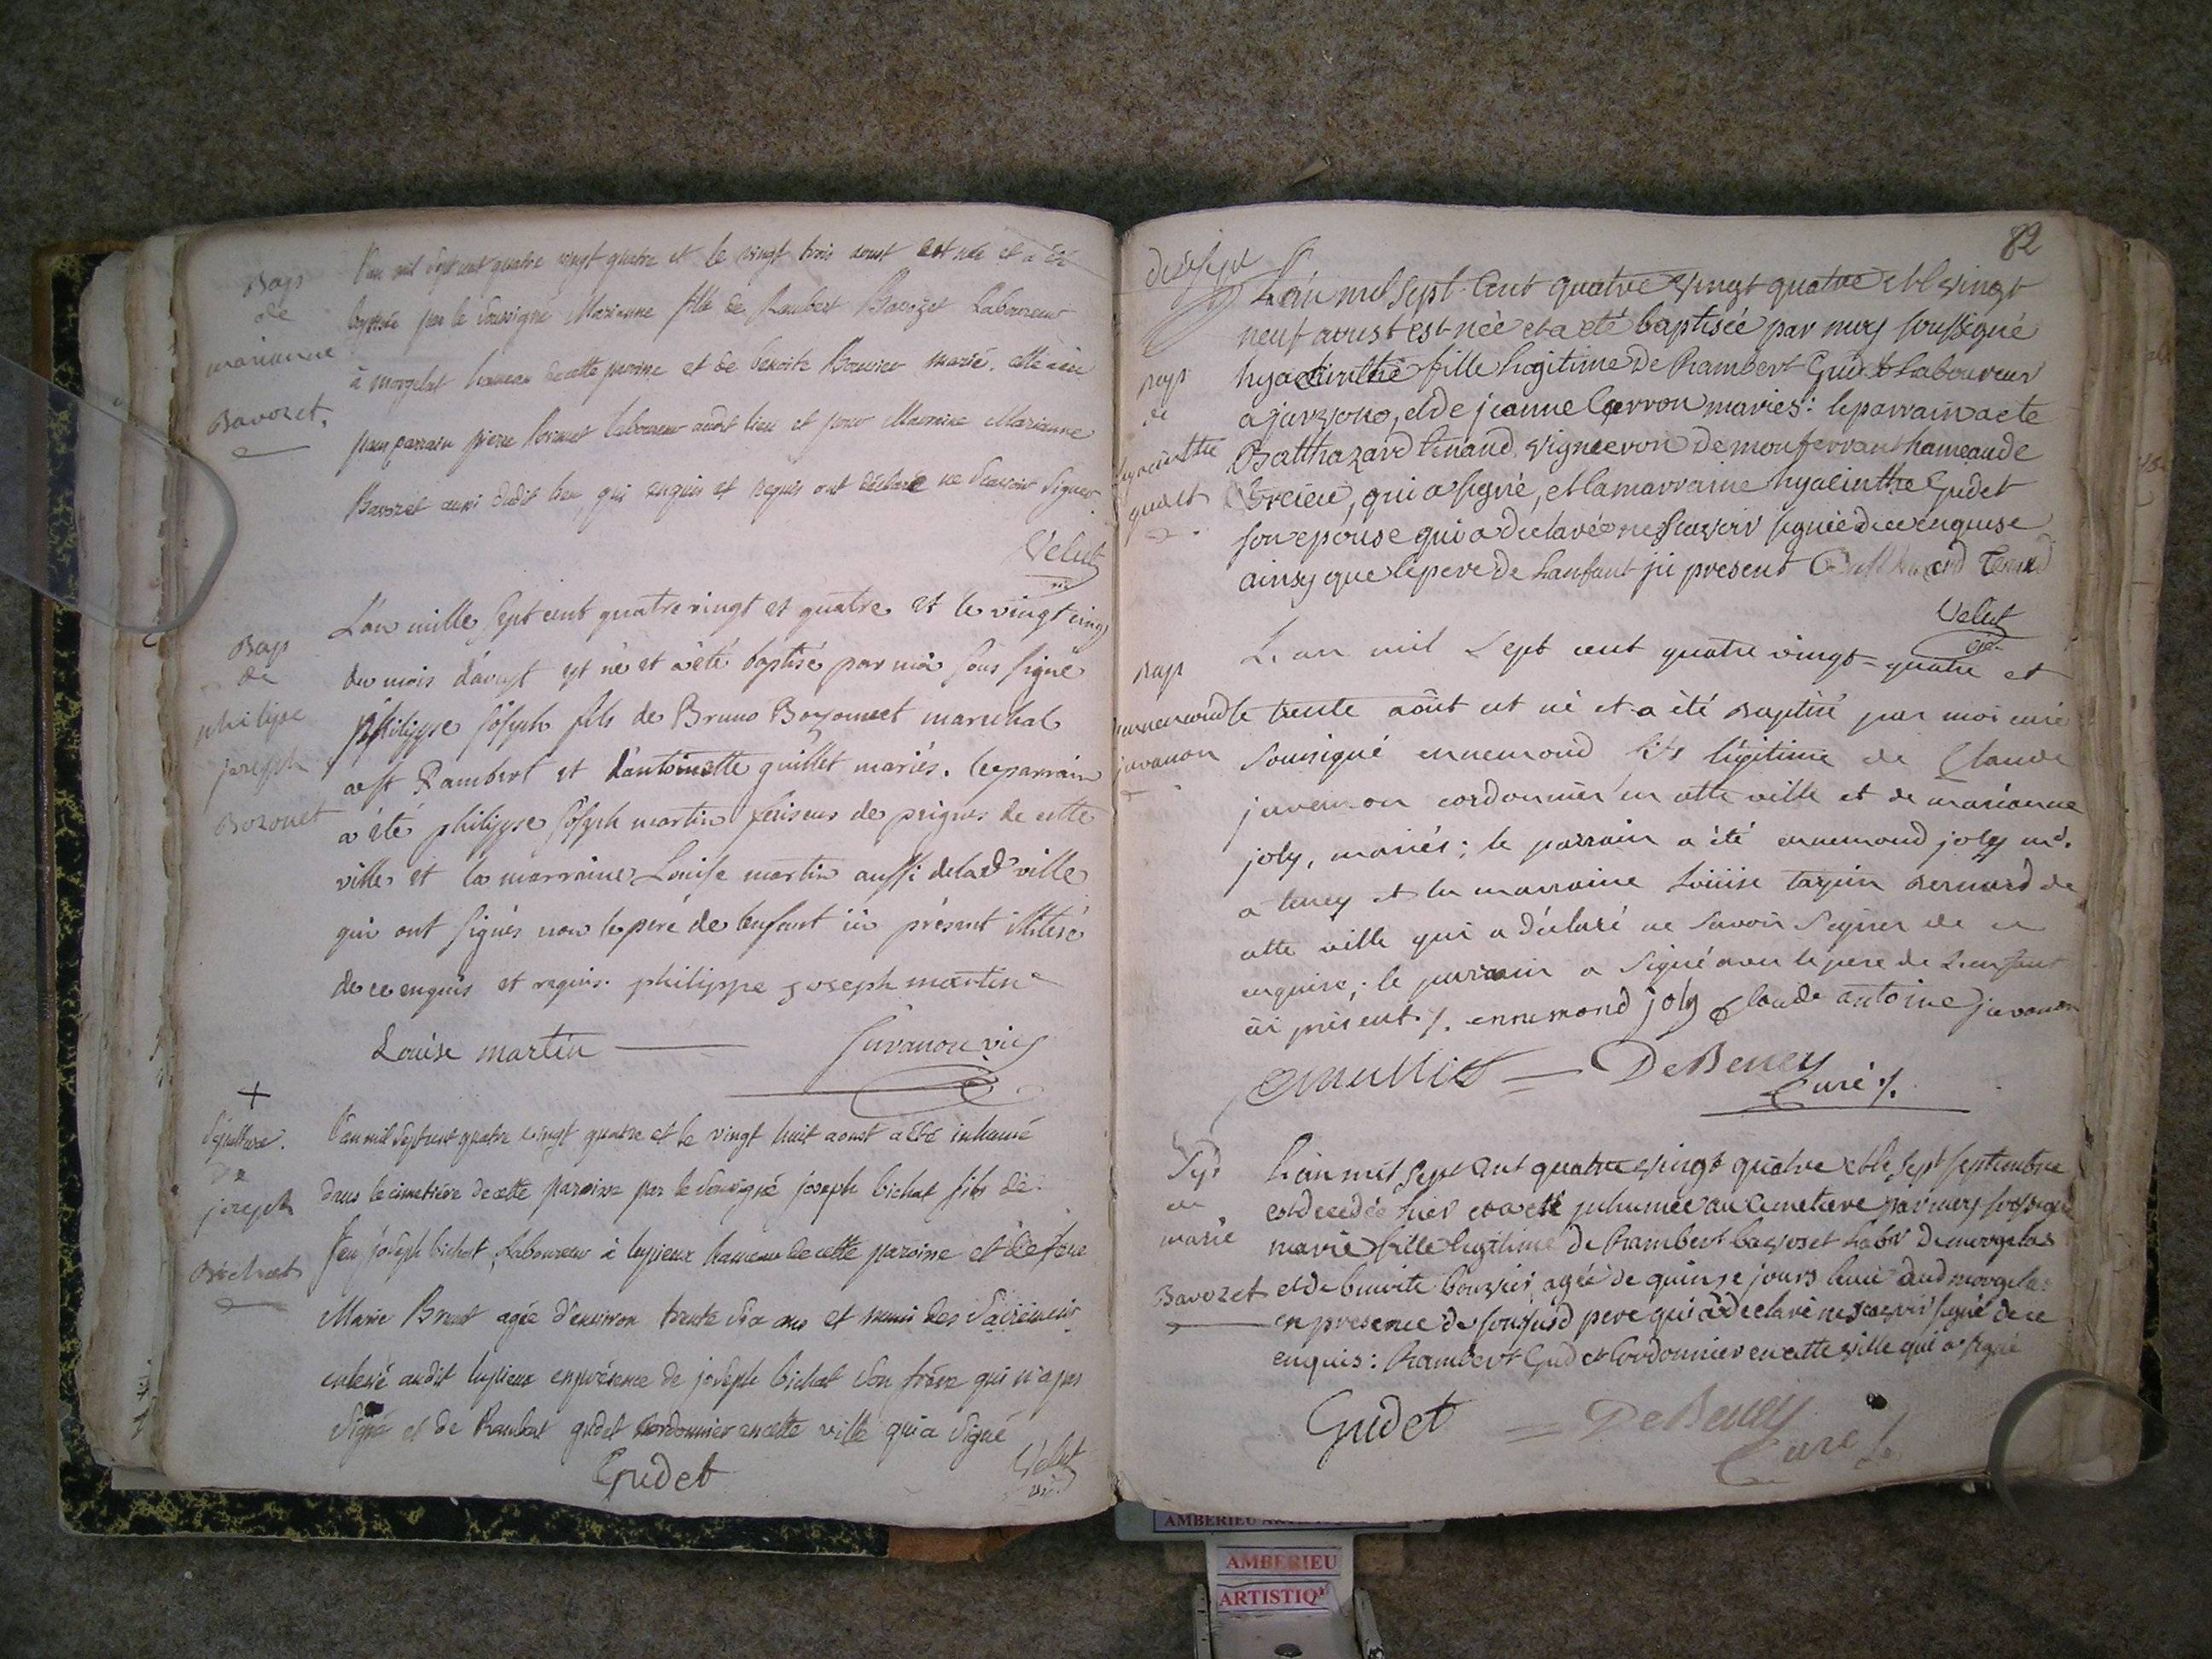 Bap
de
marianne
Bavozet.
l'an mil sept cent quatre vingt quatre et le vingt trois aoust est née et a été
baptisée par le soussigné Marianne fille de Rambert Bavozet Laboureur
à morgelat hameau de cette paroisse et de benoite Bouvier mariés. elle a eu
pour parrain pierre laboureur audit lieu et pour Marraine Marianne
Bavozet aussi dudit lieu, qui enquis et requis ont déclaré ne scavoir signer
Velut
vic
Bap
de
philippe
joseph
Bozonet
L'an mille sept cent quatre vingt et quatre et le vingt cinq
du mois d'avoust est né et a été baptisé par moi sous signé
philippe joseph fils de Bruno Bozonnet marechal
a est Rambert et d'antoinette guillet mariés. le parrain
a été philippe joseph martin faiseur de peignes de cette
ville et la marraine Louise martin aussi de lad ville
qui ont signés non le pere de l'enfant ici présent illiteré
de ce enquis et requis. philippe joseph martin
Louise martin Juvanon vic
+
sépulture.
de
joseph
Bichat
l'an mil sept cent quatre vingt quatre et le vingt huit aoust a été inhumé
dans le cimetière de cette paroisse par le soussigné joseph bichat fils de
feu joseph bichat, Laboureur à lupieux hameau de cette paroisse et de feue
Marie Brunet agée d'environ trente six ans et muni des sacremens
enlevé audit lupieux en présence de joseph bichat son frère qui n'a pas
signé et de Rambert gudet cordonnier en cette ville qui a signé
Gudet Velut
vic
82
Bap
de
hyacinthe
gudet
L'an mil sept cent quatre vingt quatre et le vingt
neuf avust est née et a eté baptisée par moy soussigné
hyacinthe fille legitime de Rambert Gudet Laboureur
a javrzono, et de jeanne Carron mariés: le parrain a ete
Balthazard tenand vigneron de monferrant hameau de
qui a signé, et la marraine hyacinthe Gudet
son epouse qui a declaré ne scavoir signé de ce enquise
ainsy que le pere de l'anfant ici present Balthazard Tenand
Velut
vic
Bap
ennemond
juvanon
L'an mil sept cent quatre vingt-quatre et
le trente août est né et a été Baptisé par moi curé
soussigné ennemond fils légitime de Claude
juvanon cordonnier en cette ville et de marianne
joly, mariés; le parrain a été ennemond joly md.
a tenay et la marraine Louise tapin Bernard de
cette ville qui a déclaré ne savoir signer de ce
enquise; le parrain a signé avec le pere de l'enfant
ici présent ennemond joly Claude antoine juvanon
De Beney
Curé
Sep
de
marie
Bavozet
L'an mil sept cent quatre vingt quatre et le sept septembre
est decedée hier et a eté inhumée au cimetiere par moy soussigné
marie fille legitime de Rambert bavoset Labr de morgelas
et de benoite bouvier, agée de quinze jours levée aud morgelas
en presence de son susd pere qui a declaré ne scavoir signé de ce
enquis: Rambert Gudet Cordonnier en cette ville qui a signé
Gudet = De Beney
Curé
AMBERIEU
ARTISTIQ